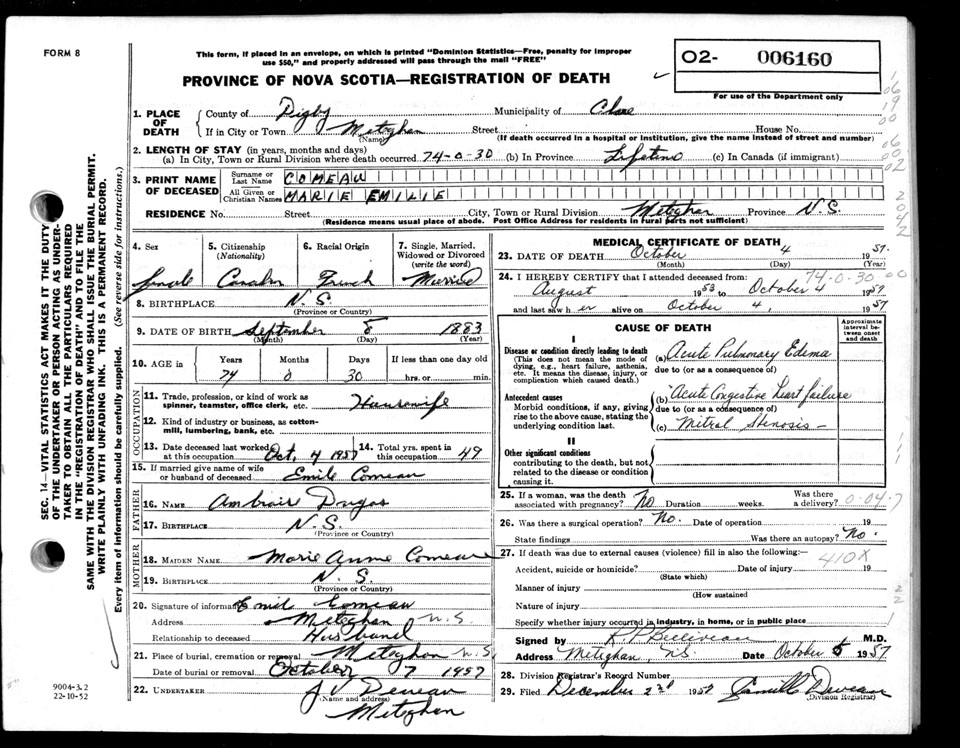 FORM 8
This form, if placed in an envelope, on which is printed "Dominion Statistics—Free, penalty for improper
use $50," and properly addressed will pass through the mail "FREE"
PROVINCE OF NOVA SCOTIA—REGISTRATION OF DEATH
02- 006160
For use of the Department only
1. PLACE OF DEATH
County of Digby Municipality of Clare
If in City or Town Meteghan Street House No.
(Name) (If death occurred in a hospital or institution, give the name instead of street and number)
2. LENGTH OF STAY (in years, months and days)
(a) In City, Town or Rural Division where death occurred 74-0-30 (b) In Province Lifetime (c) In Canada (if immigrant)
3. PRINT NAME OF DECEASED
Surname or Last Name COMEAU
All Given or Christian Names MARIE EMILIE
RESIDENCE No. Street City, Town or Rural Division Meteghan Province N.S.
(Residence means usual place of abode. Post Office Address for residents in rural parts not sufficient)
4. Sex 5. Citizenship (Nationality) 6. Racial Origin 7. Single, Married, Widowed or Divorced (write the word)
female French Married
8. BIRTHPLACE N.S.
(Province or Country)
9. DATE OF BIRTH September 8 1883
(Month) (Day) (Year)
10. AGE in Years Months Days If less than one day old
74 0 30 hrs. or min.
OCCUPATION
11. Trade, profession, or kind of work as
spinner, teamster, office clerk, etc. Housewife
12. Kind of industry or business, as cotton-
mill, lumbering, bank, etc.
13. Date deceased last worked at this occupation Oct. 4 1957 14. Total yrs. spent in this occupation 49
15. If married give name of wife
or husband of deceased Emile Comeau
FATHER
16. NAME Ambroise Dugas
17. BIRTHPLACE N.S.
(Province or Country)
MOTHER
18. MAIDEN NAME Marie Anne Comeau
19. BIRTHPLACE N.S.
(Province or Country)
20. Signature of informant Emile Comeau
Address Meteghan N.S.
Relationship to deceased Husband
21. Place of burial, cremation or removal Meteghan N.S.
Date of burial or removal October 7 1957
22. UNDERTAKER
(Name and address)
Meteghan
MEDICAL CERTIFICATE OF DEATH
23. DATE OF DEATH October 4 1957
(Month) (Day) (Year)
74-0-30
24. I HEREBY CERTIFY that I attended deceased from:
August 1953 to October 4 1957
and last saw her alive on October 4, 1957
CAUSE OF DEATH
Approximate interval between onset and death
I
Disease or condition directly leading to death
(This does not mean the mode of dying, e.g., heart failure, asthenia, etc. It means the disease, injury, or complication which caused death.)
(a) Acute Pulmonary Edema
due to (or as a consequence of)
Antecedent causes
Morbid conditions, if any, giving rise to the above cause, stating the underlying condition last.
(b) Acute Congestive heart failure
due to (or as a consequence of)
(c) Mitral Stenosis
II
Other significant conditions
contributing to the death, but not related to the disease or condition causing it.
25. If a woman, was the death associated with pregnancy? No Duration weeks. Was there a delivery?
26. Was there a surgical operation? No. Date of operation 19
State findings Was there an autopsy? No.
27. If death was due to external causes (violence) fill in also the following:—
410X
Accident, suicide or homicide? Date of injury 19
(State which)
Manner of injury
(How sustained
Nature of injury
Specify whether injury occurred in industry, in home, or in public place
Signed by M.D.
Address Meteghan, NS Date October 1957
28. Division Registrar's Record Number
29. Filed December 2nd 1957
(Division Registrar)
SEC. 14—VITAL STATISTICS ACT MAKES IT THE DUTY
OF THE UNDERTAKER OR PERSON ACTING AS UNDER-
TAKER TO OBTAIN ALL THE PARTICULARS REQUIRED
IN THE "REGISTRATION OF DEATH" AND TO FILE THE
SAME WITH THE DIVISION REGISTRAR WHO SHALL ISSUE THE BURIAL PERMIT.
WRITE PLAINLY WITH UNFADING INK. THIS IS A PERMANENT RECORD.
Every item of information should be carefully supplied. (See reverse side for instructions.)
9004-3.2
22-10-52